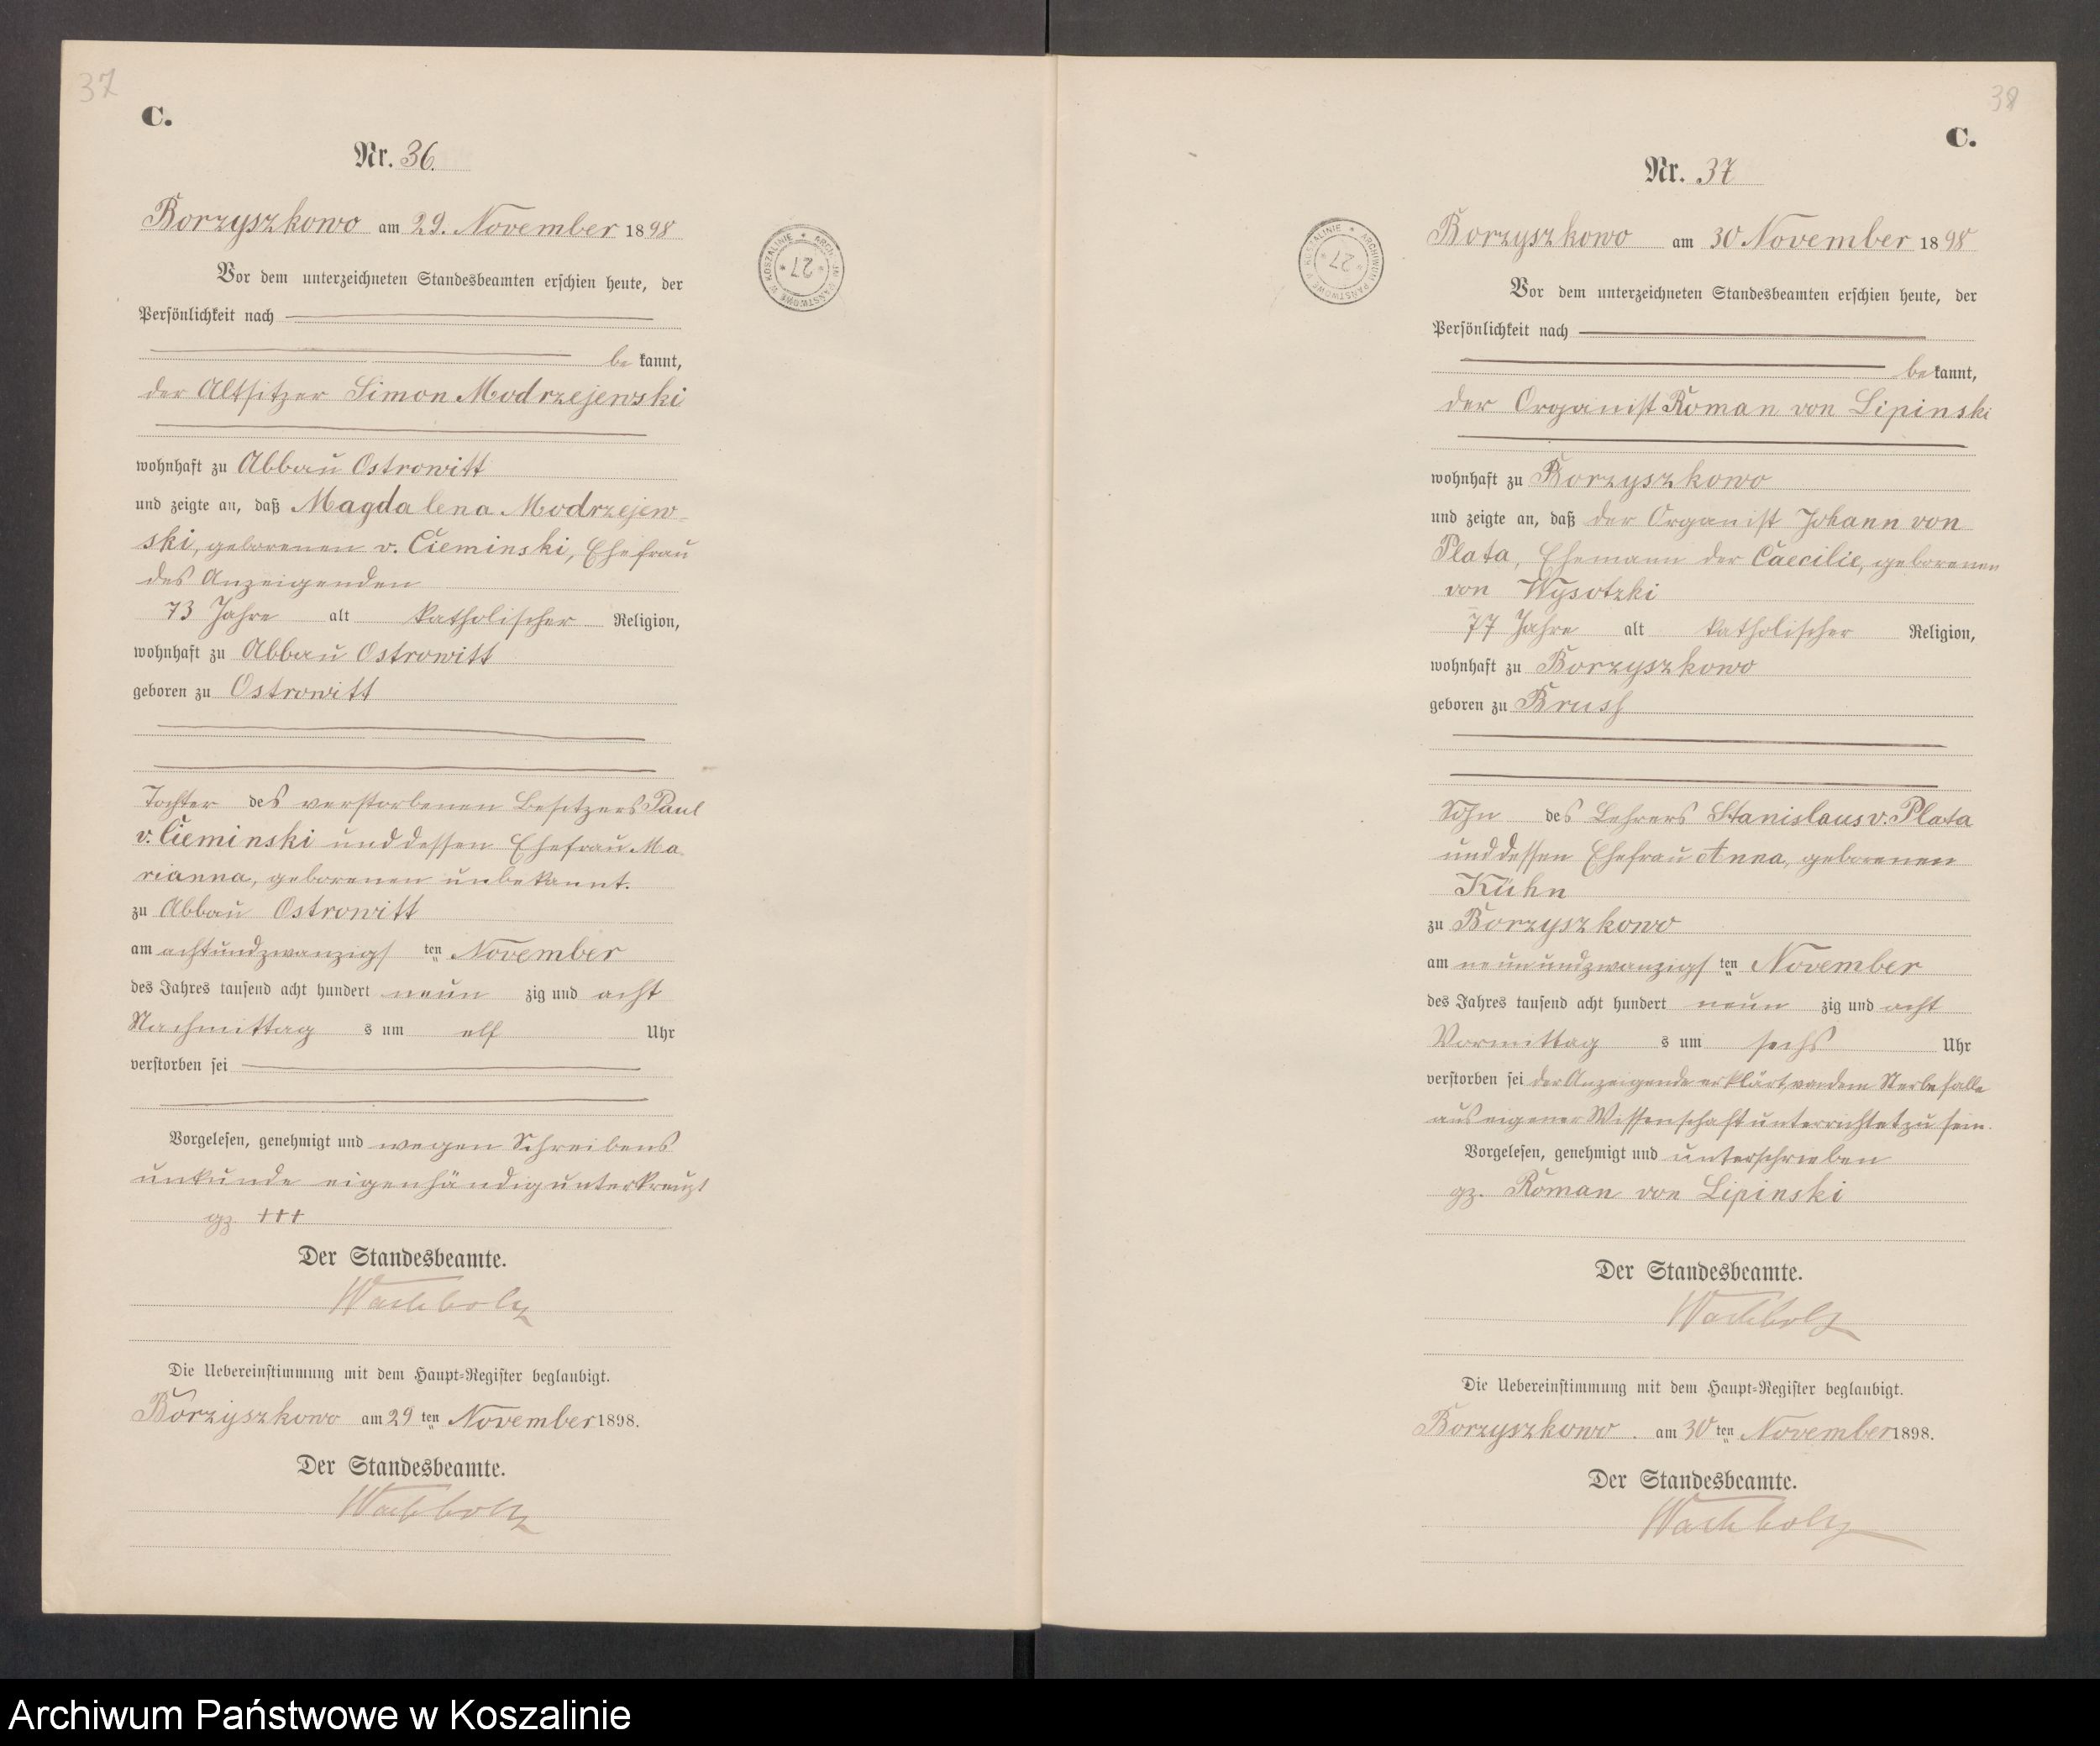 37
C.
Nr. 36.
Borzyszkowo am 29. November 1898
Vor dem unterzeichneten Standesbeamten erschien heute, der
Persönlichkeit nach
be kannt,
der Altsitzer Simon Modrzejewski
wohnhaft zu Abbau Ostrowitt
und zeigte an, daß Magdalena Modrzejew-
ski, geborenen v. Cieminski, Ehefrau
des Anzeigenden
73 Jahre alt katholischer Religion,
wohnhaft zu Abbau Ostrowitt
geboren zu Ostrowitt
Tochter des verstorbenen Besitzers Paul
v. Cieminski und dessen Ehefrau Ma
rianna, geborenen unbekannt.
zu Abbau Ostrowitt
am achtundzwanzigs ten November
des Jahres tausend acht hundert neun zig und acht
Nachmittag s um elf Uhr
verstorben sei
Vorgelesen, genehmigt und wegen Schreibens
unkunde eigenhändig unterkreuzt
gz. +++
Der Standesbeamte.
Wachholz
Die Uebereinstimmung mit dem Haupt-Register beglaubigt.
Borzyszkowo am 29 ten November 1898.
Der Standesbeamte.
Wachholz
ARCHIWUM PAŃSTWOWE W KOSZALINIE
27
38
C.
Nr. 37
Borzyszkowo am 30 November 1898
Vor dem unterzeichneten Standesbeamten erschien heute, der
Persönlichkeit nach
be kannt,
der Organist Roman von Lipinski
wohnhaft zu Borzyszkowo
und zeigte an, daß der Organist Johann von
Plata, Ehemann der Caecilie, geborenen
von Wysotzki
77 Jahre alt katholischer Religion,
wohnhaft zu Borzyszkowo
geboren zu Brush
Sohn des Lehrers Stanislaus v. Plata
und dessen Ehefrau Anna, geborenen
Kühn
zu Borzyszkowo
am neunundzwanzigs ten November
des Jahres tausend acht hundert neun zig und acht
Vormittag s um sechs Uhr
verstorben sei der Anzeigende erklärt, von dem Sterbefalle
aus eigener Wissenschaft unterrichtet zu sein.
Vorgelesen, genehmigt und unterschrieben
gz. Roman von Lipinski
Der Standesbeamte.
Wachholz
Die Uebereinstimmung mit dem Haupt-Register beglaubigt.
Borzyszkowo. am 30 ten November 1898.
Der Standesbeamte.
Wachholz
ARCHIWUM PAŃSTWOWE W KOSZALINIE
27
Archiwum Państwowe w Koszalinie